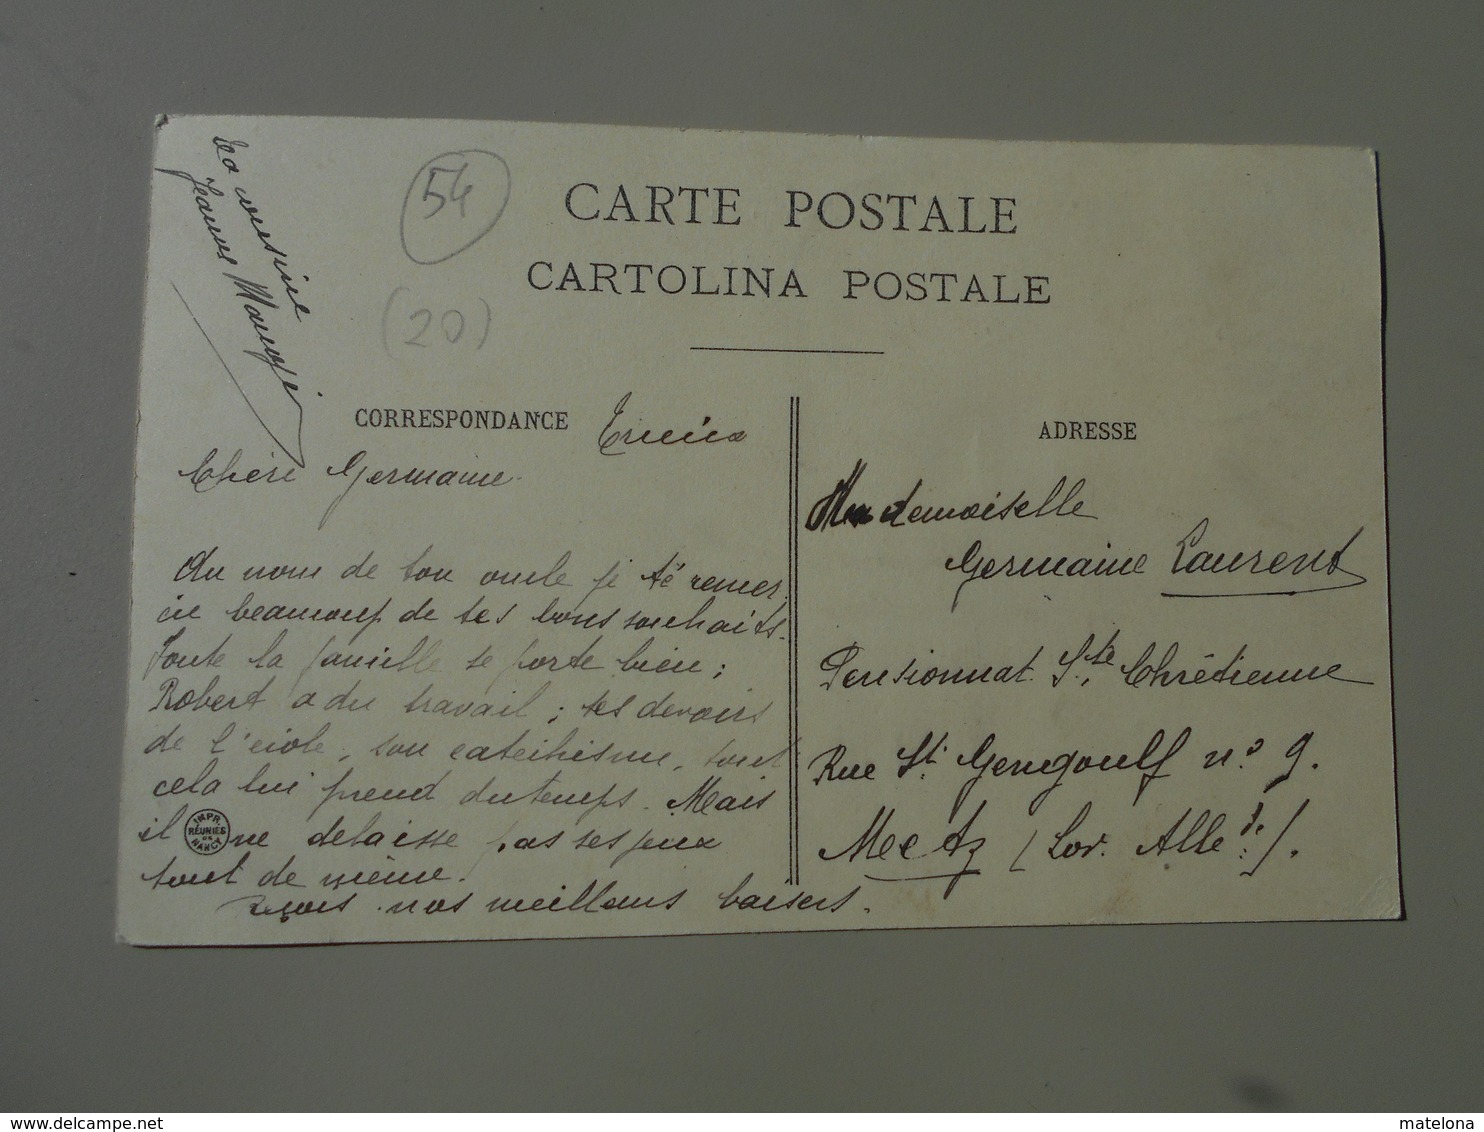 Ta cousine
Jeanne
54
(20)
CARTE POSTALE
CARTOLINA POSTALE
CORRESPONDANCE
ADRESSE
Chère Germaine.
Au nom de ton oncle je te remer
cie beaucoup de tes bons souhaits.
Toute la famille se porte bien ;
Robert a du travail ; ses devoirs
de l'école, son catéchisme, tout
cela lui prend du temps. Mais
il ne délaisse pas ses jeux
tout de même.
Reçois nos meilleurs baisers.
IMPR. RÉUNIES DE NANCY
Mademoiselle
Germaine Laurent
Pensionnat Ste Chrétienne
Rue St Gengoulf no 9.
Metz (Lor. Alle de).
matelona